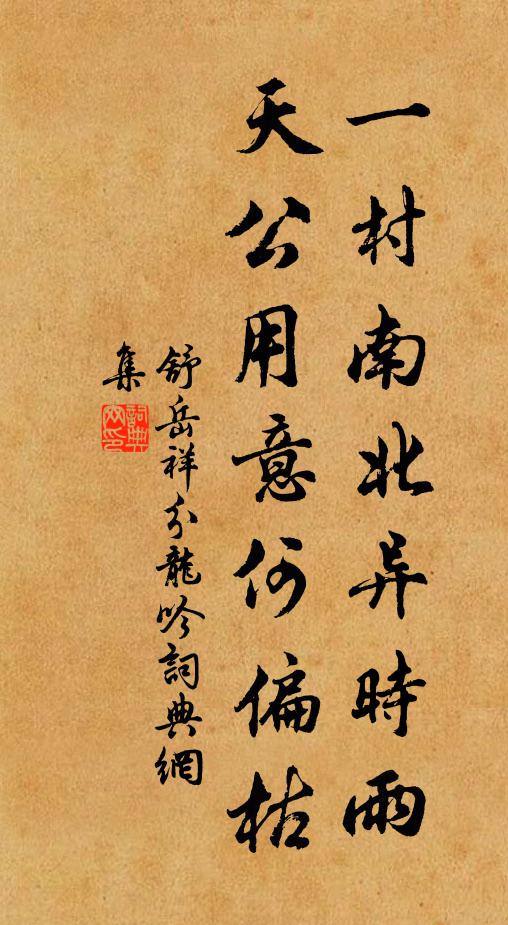 一村南北异時雨
天公用意何偏枯
舒岳祥分龍吟詞典網
集
詞典網印